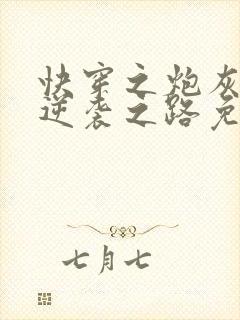 快穿之炮灰
逆袭之路免
七月七